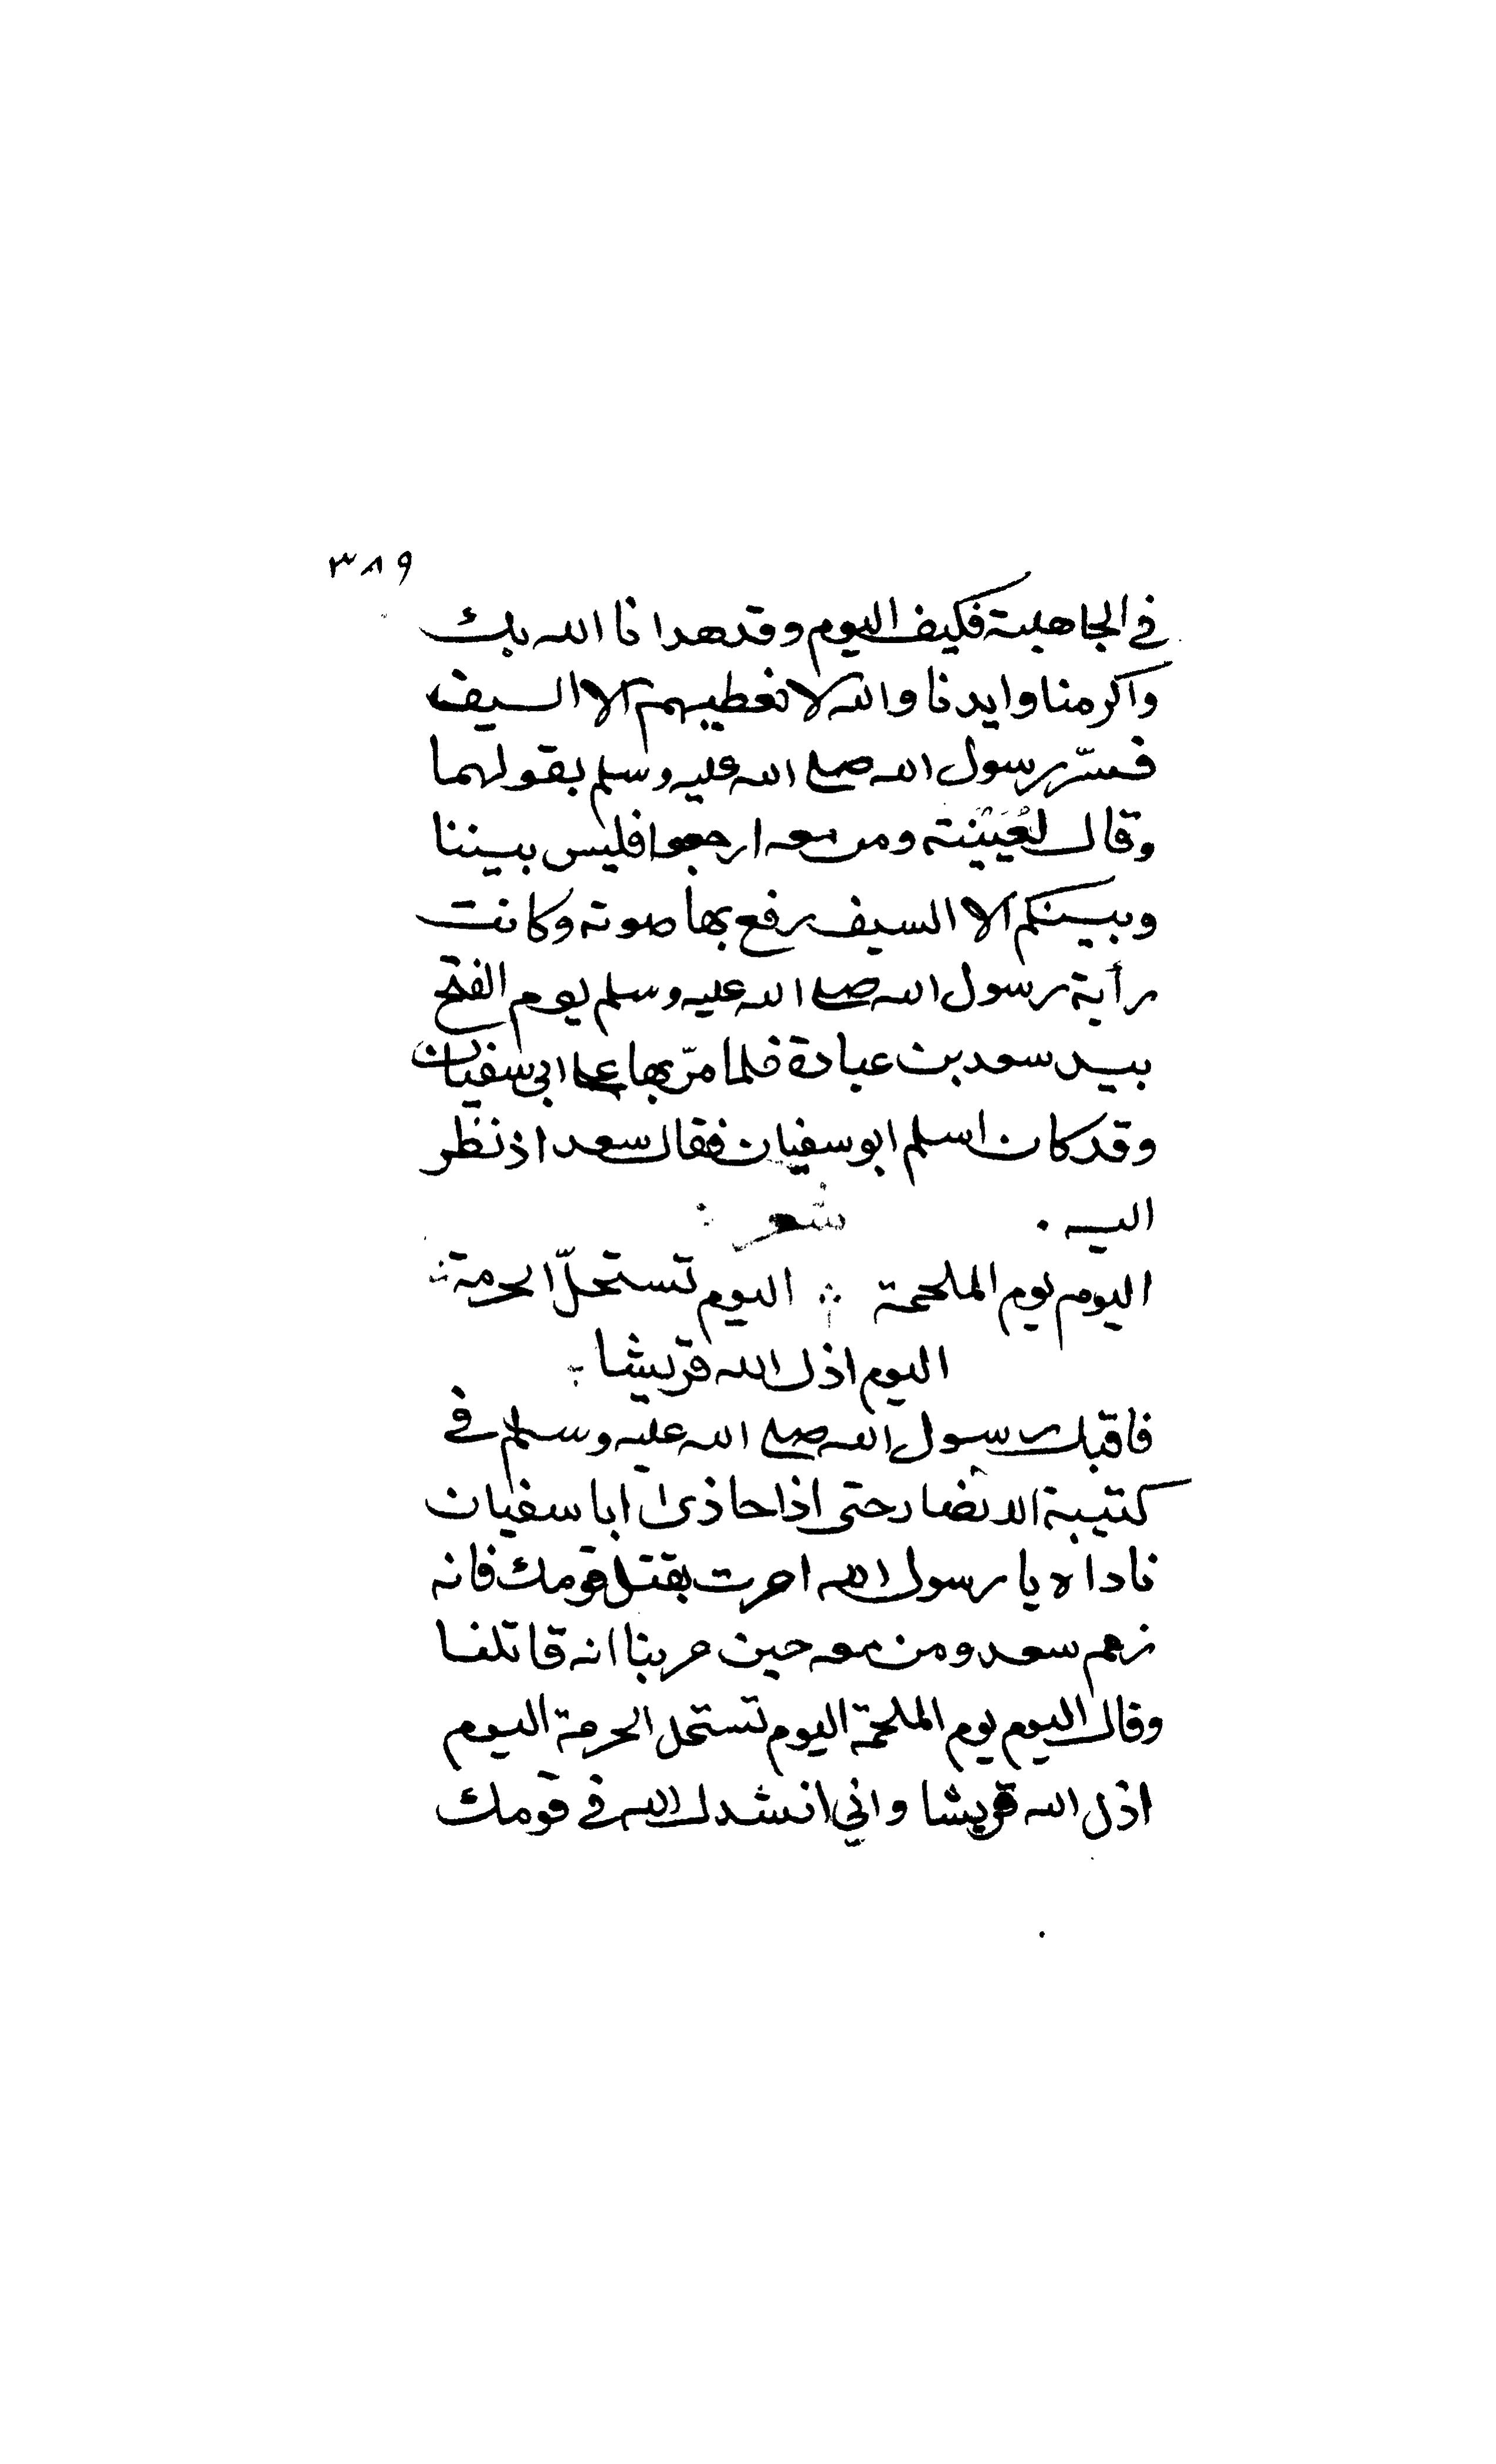 ٣٨٩
في الجاهلية فكيف اليوم وقد هدانا الله بك
واكرمنا وايدنا والله لا نعطيهم الا السيف
فسرّ رسول الله صلى الله عليه وسلم بقولهما
وقال لعُيَيْنة ومن معه ارجعوا فليس بيننا
وبينكم الا السيف رفع بها صوته وكانت
رأية رسول الله صلى الله عليه وسلم يوم الفتح
بيد سعد بن عبادة فلما مرّ بها على ابي سفيان
وقد كان اسلم ابو سفيان فقال سعد اذ نظر
اليه شعر
اليوم يوم الملحمة ∴ اليوم تستحلّ الحرمة ∴
اليوم اذل الله قريشا
فاقبل رسول الله صلى الله عليه وسلم في
كتيبة الانصار حتى اذا حاذى ابا سفيان
ناداه يا رسول الله امرت بقتل قومك فانه
زعم سعد ومن معه حين مر بنا انه قاتلنا
وقال اليوم يوم الملحمة اليوم تستحل الحرمة اليوم
اذل الله قريشا واني انشدك الله في قومك